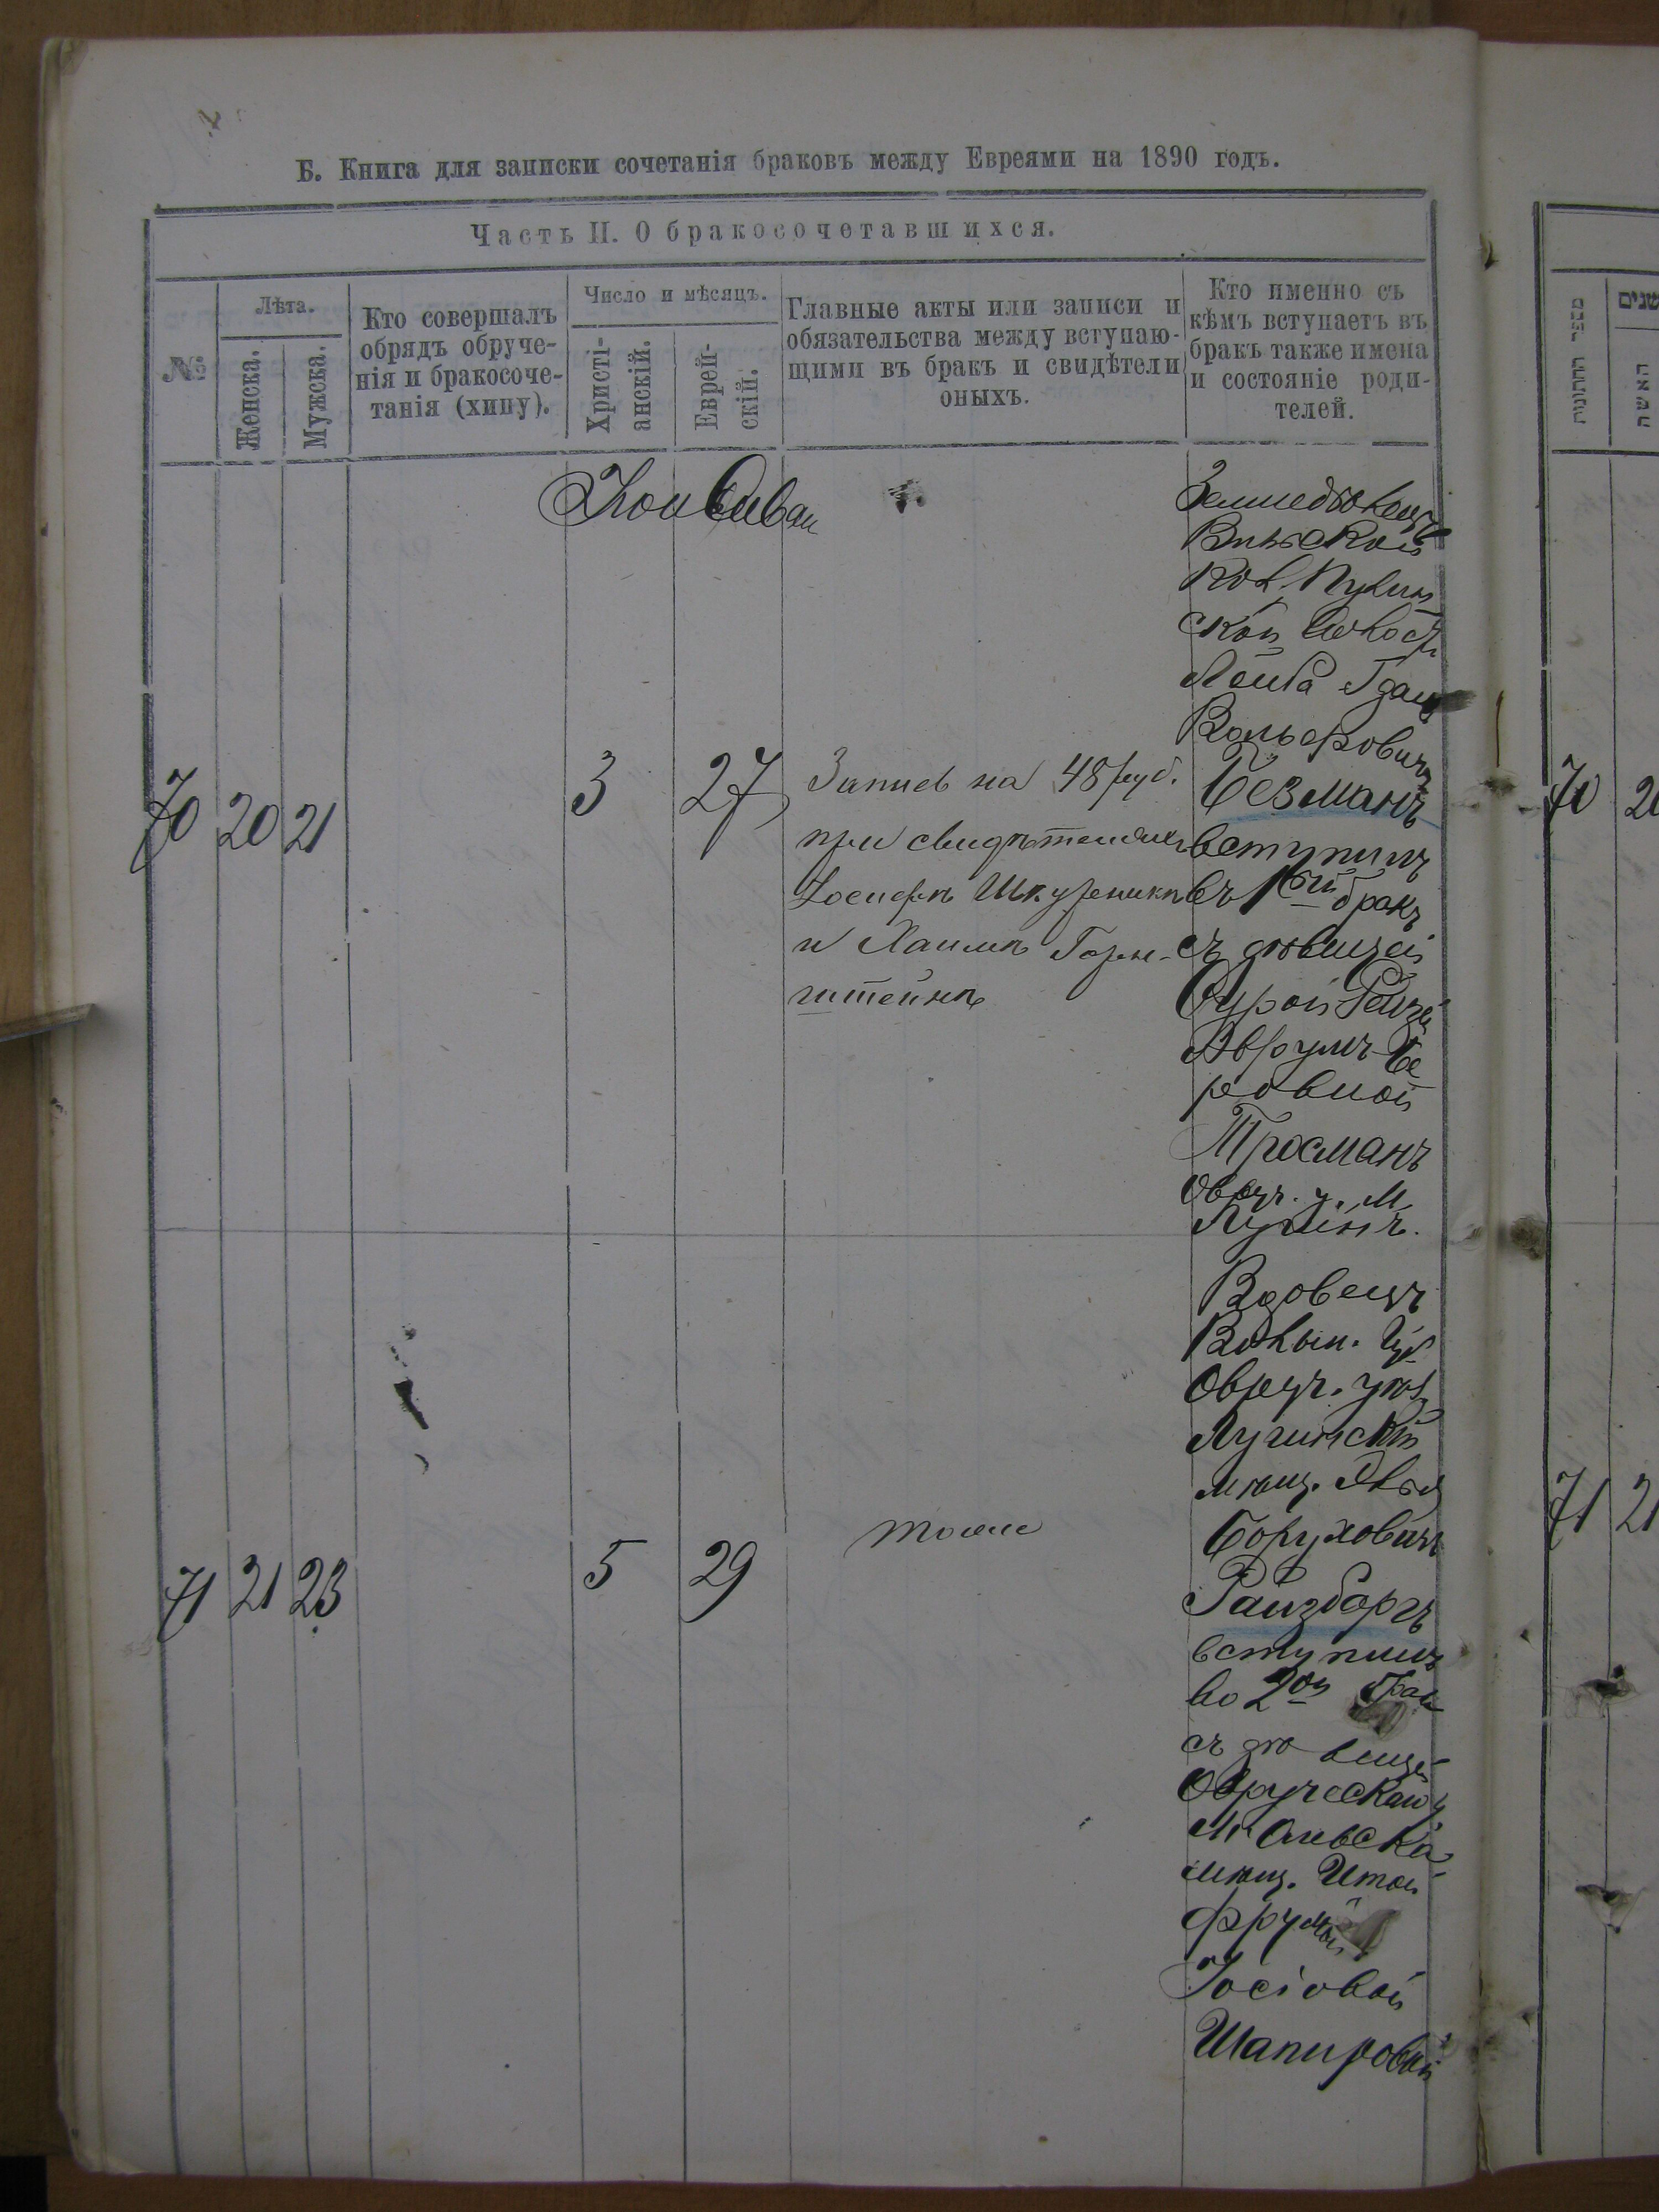 Б. Книга для записки сочетанія браковъ между Евреями на 1890 годъ.
Часть II. О бракосочетавшихся.
№
Лѣта.
Женска.
Мужска.
Кто совершалъ
обрядъ обруче-
нія и бракосоче-
танія (хипу).
Число и мѣсяцъ.
Христі-
анскій.
Еврей-
скій.
Главные акты или записи и
обязательства между вступаю-
щими въ бракъ и свидѣтели
оныхъ.
Кто именно съ
кѣмъ вступаетъ въ
бракъ также имена
и состояніе роди-
телей.
Сиван
70 20 21
3 27
Запись на 48 руб.
при свидѣтеляхъ
Іосифѣ Шкуреникѣ
и Хаимѣ Горен-
штейнѣ
Лейба
Вольфовичъ
Безманъ
вступилъ
въ 1ый бракъ
съ дѣвицей
Сурой Рейзей
Аврумъ-Бе
ровной
Тросманъ
Овруч. у. М.
Лугинъ.
71 21 23
5 29
тоже
Вдовецъ
Волын. Губ
Овруч. уѣз
Лугинскій
мѣщ.
Боруховичъ
Райзборгъ
вступилъ
во 2ой брак
съ дѣвицей
Овручскаго у
М. Олевска
мѣщ. Итой
Фрумой
Іосіовой
Шапировой
מספר החתונות
שנים
האשה
70 20
71 21